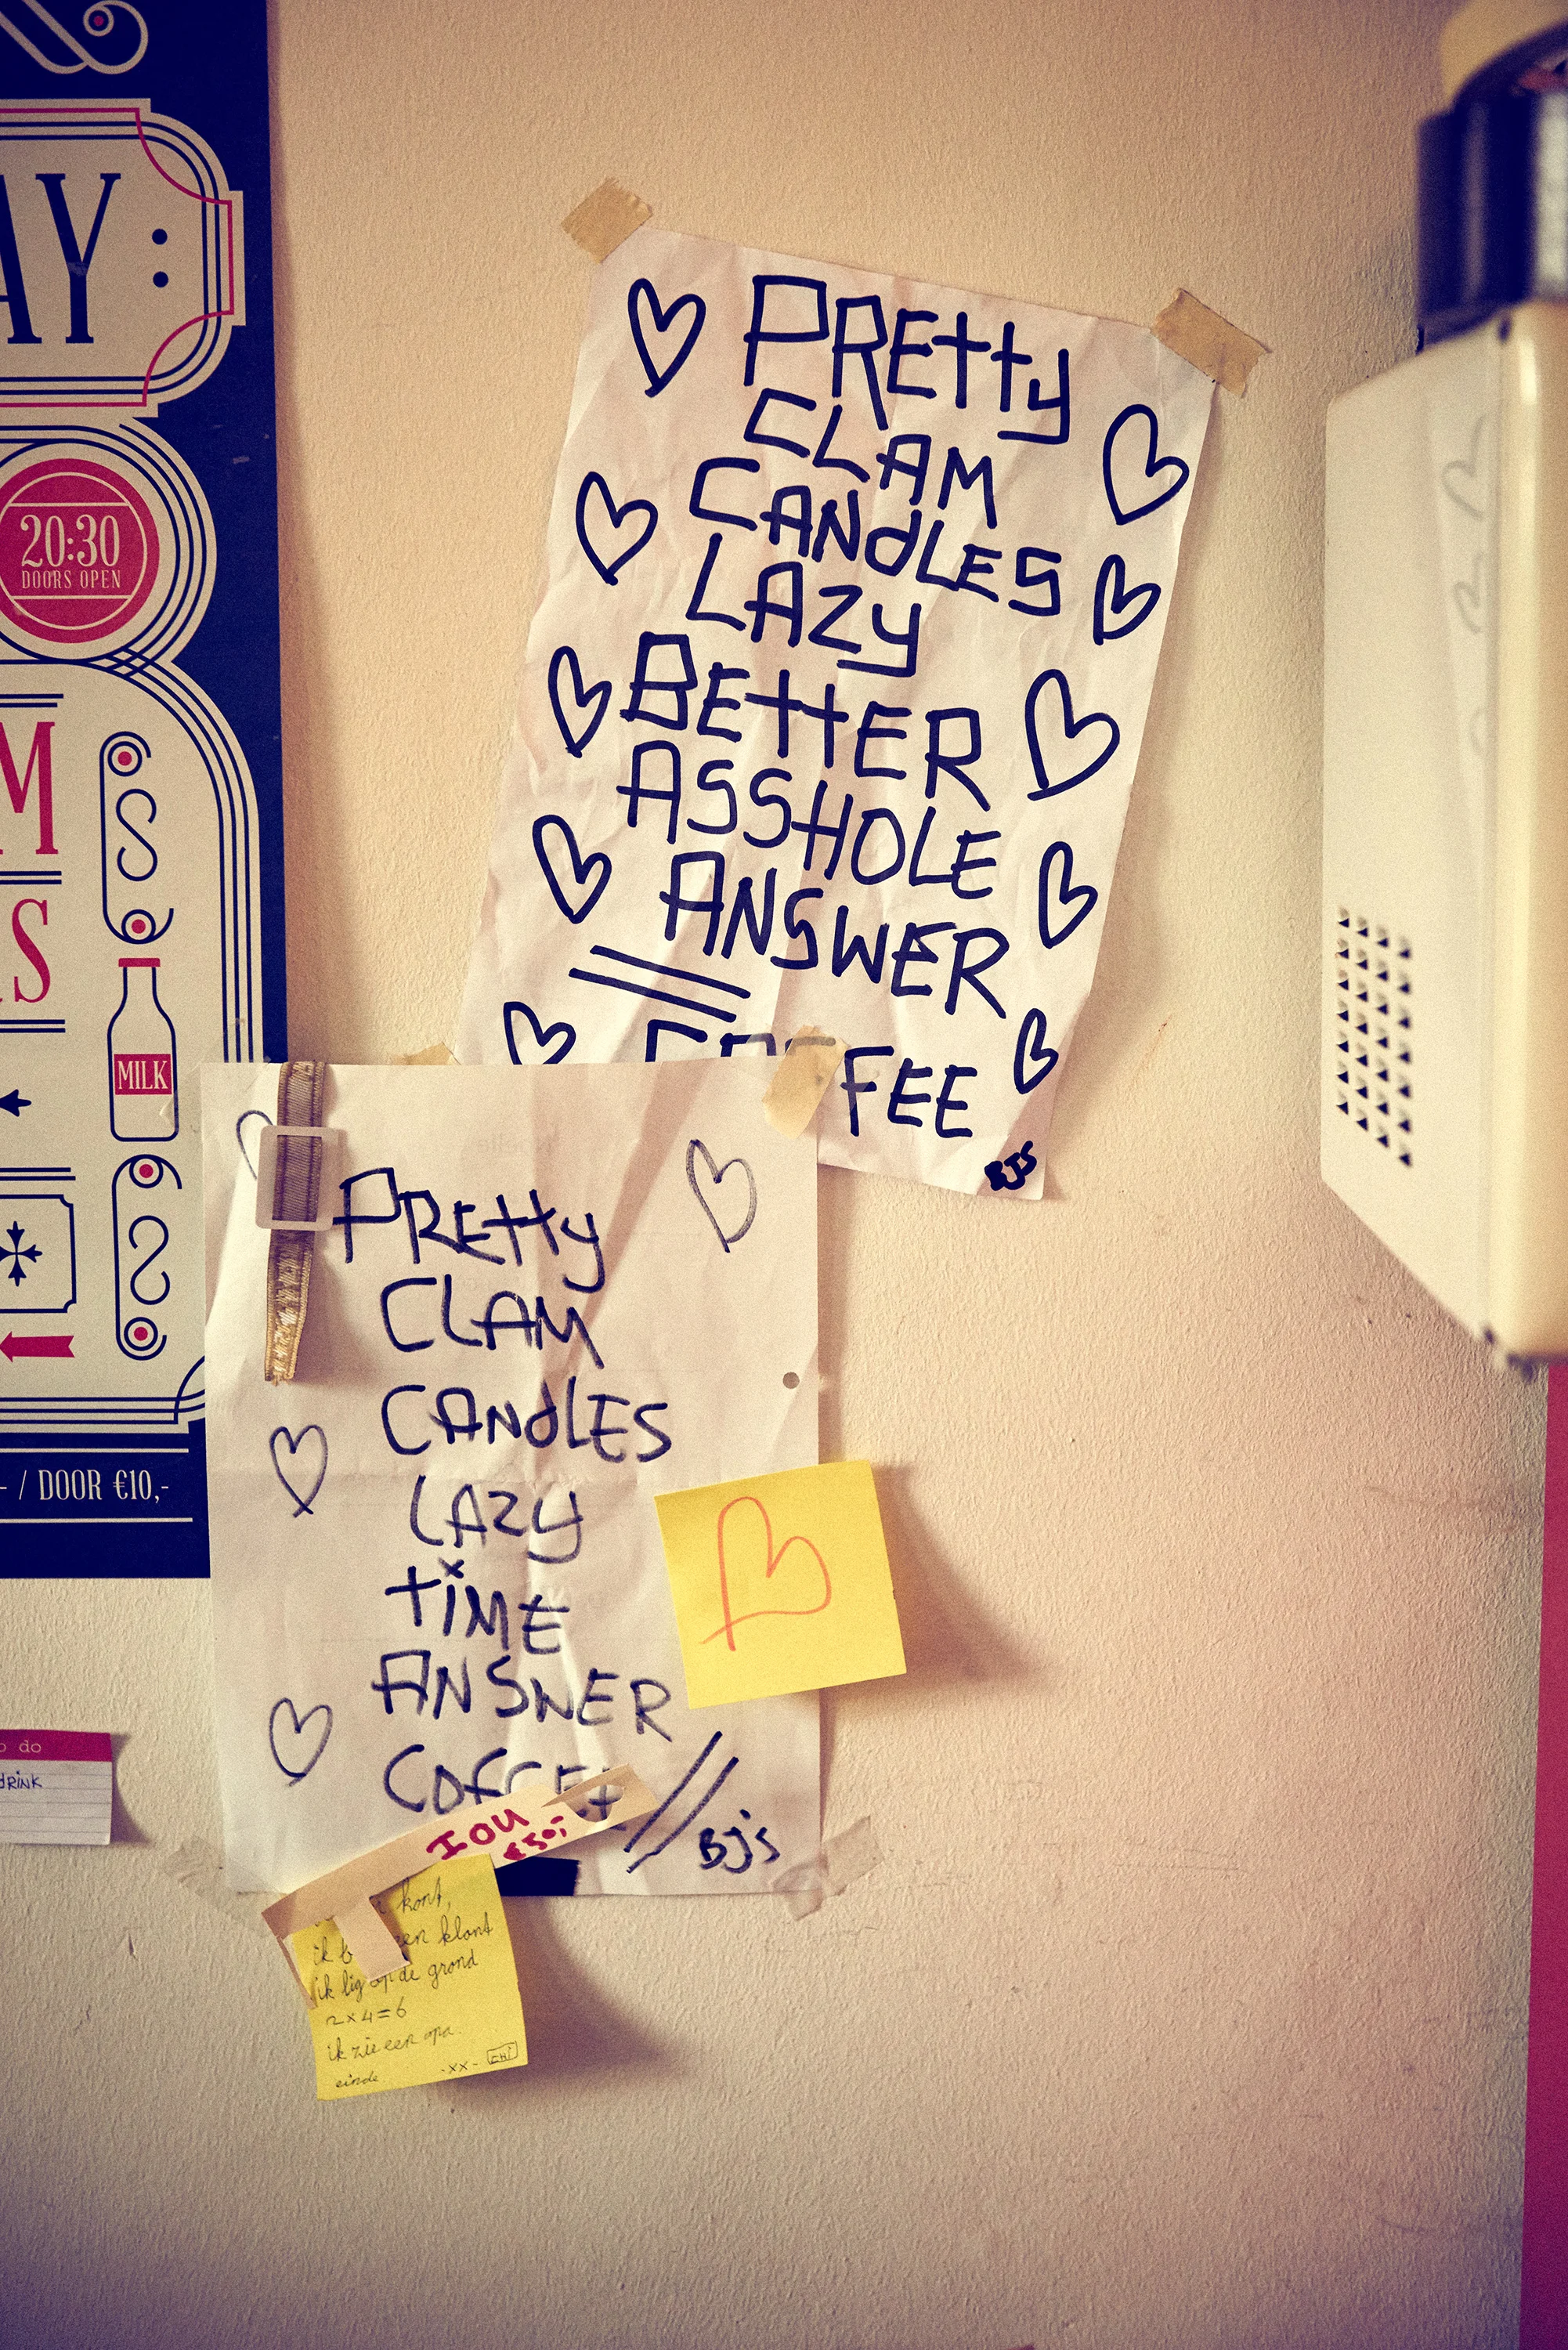 AY:
20:30
DOORS OPEN
M
S
MILK
- / DOOR €10,-
PREttY
CLAM
CANdLES
LAZY
BEttER
ASSHOLE
ANSWER
FEE
BJS
PREttY
CLAM
CANdLES
LAZY
tiME
ANSWER
COFFEE
BJ's
IOU
€50,-
do
DRINK
kont,
ik een klont
ik lig op de grond
2x4=6
ik zie een opa.
einde -xx- CHI